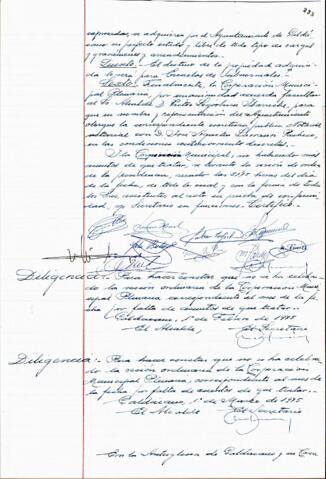 expresadas, se adquiera por el Ayuntamiento de Galdá-
cano en perfecto estado y libre de todo tipo de cargas
y gravámenes y arrendamientos.
Quinto.- El destino de la propiedad adquiri-
da será para Escuelas de Subnormales.
Sexto.- Finalmente, la Corporación Munici-
pal Plenaria, por unanimidad acuerda facultar
al Sr. Alcalde D. Victor
en su nombre y representación del Ayuntamiento
otorgue la correspondiente escritura pública
notarial con D. Jose Agustin Larracoa Pacheco,
en las condiciones anteriormente descritas.
Y la Corporación Municipal, no habiendo más
asuntos de que tratar, se levantó la sesión de orden de
la presidencia, siendo las 21,75 horas del día
de la fecha, de todo lo cual y con la firma de todos
los Sres. asistentes al acto en prueba de conformi-
dad, yo Secretario en funciones. Certifico.
Diligencia:- Para hacer constar que no se ha celebra-
do la sesión ordinaria de la Corporación Muni-
cipal Plenaria correspondiente al mes de la fe-
cha por falta de asuntos de que tratar.
Galdacano, 1º de Febrero de 1975
El Alcalde, El Secretario
Diligencia:- Para hacer constar que no se ha celebra-
do la sesión ordinaria de la Corporación
Municipal Plenaria, correspondiente al mes de
la fecha por falta de asuntos de que tratar.
Galdacano, 1º de Marzo de 1975
El Alcalde El Secretario
En la Anteiglesia de Galdacano y su Casa